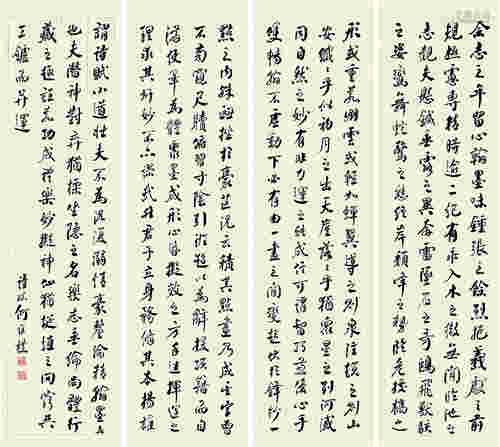 余志之年留心翰墨味鍾張之餘烈挹羲獻之前
規極慮專精時逾二紀有乖入木之微無間臨池之
志觀夫懸鍼垂露之異奔雷墜石之奇鴻飛獸駭
之姿鸞舞蛇驚之態絕岸頹峰之勢臨危據槁之
形或重若崩雲或輕如蟬翼導之則泉注頓之則山
安纖纖乎似初月之出天崖落落乎猶眾星之列河漢
同自然之妙有非力運之能成信可謂智巧兼優心手
雙暢翰不虛動下必有由一畫之間變起伏於鋒杪一
點之內殊衄挫於豪芒況云積其點畫乃成其字曾
不傍窺尺牘俯習寸陰引班超以為辭援項籍而自
滿任筆為體聚墨成形心昏擬效之方手迷揮運之
理求其妍妙不亦謬哉然君子立身務修其本楊雄
謂詩賦小道壯夫不為況復溺思豪釐淪精翰墨者
也夫潛神對弈猶標坐隱之名樂志垂綸尚體行
藏之趣詎若功成禮樂妙擬神仙猶埏埴之罔窮與
工鑪而并運
詩孫何維樸